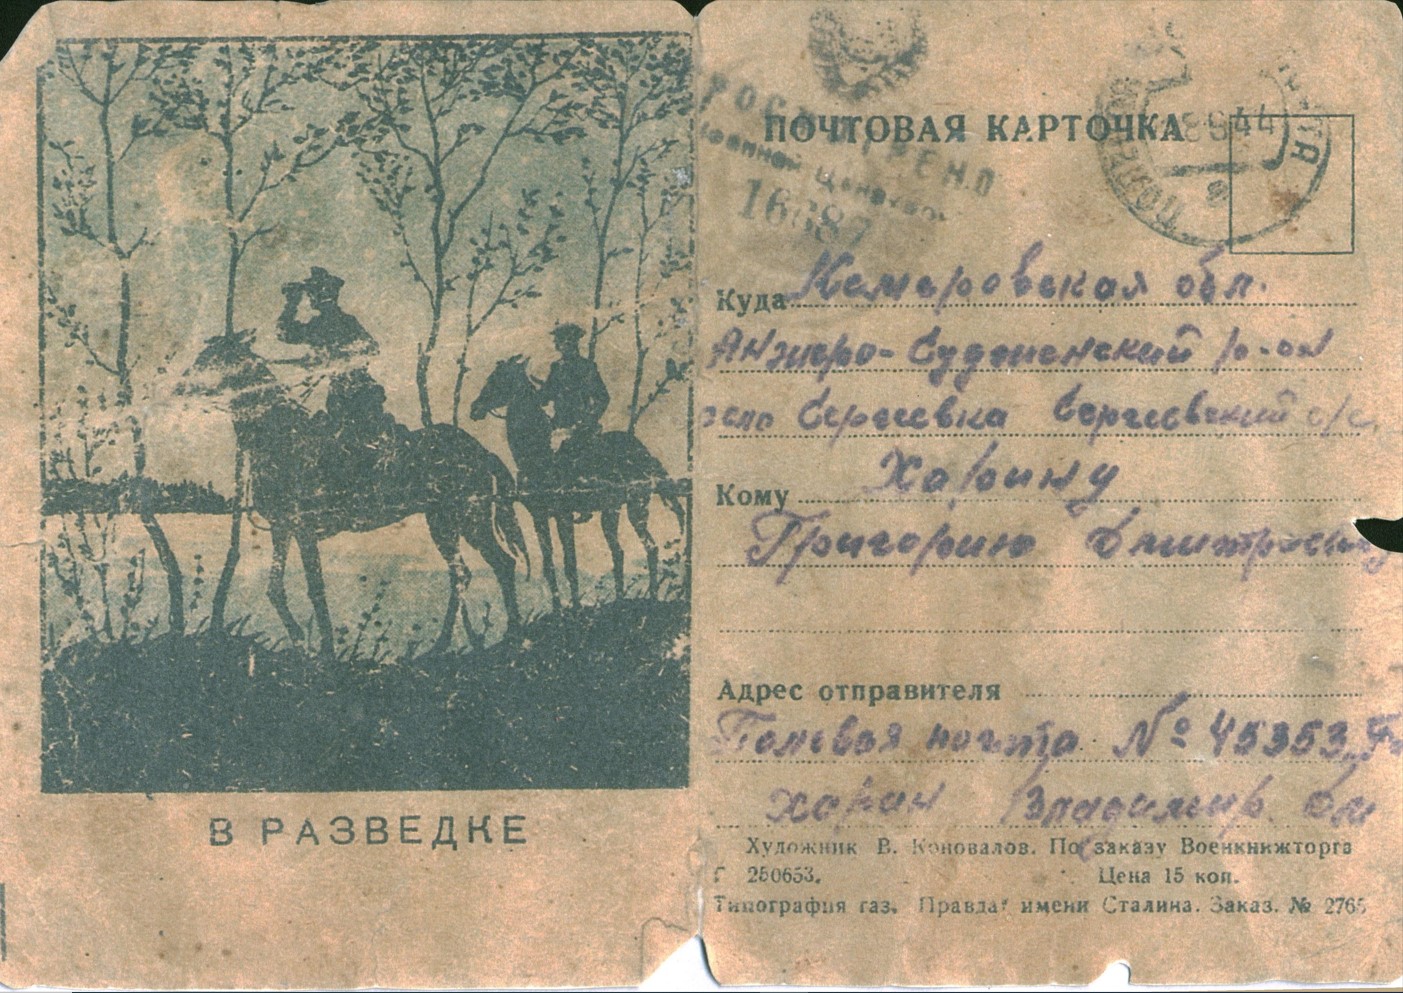 В РАЗВЕДКЕ
ПРОСМОТРЕНО
Военной Цензурой
16687
ПОЧТОВАЯ КАРТОЧКА
8 9 44
Куда Кемеровская обл.
Анжеро-Судженский р-он
село Сергеевка Сергеевский с/с.
Кому Харину
Григорию Дмитриевичу
Адрес отправителя
Полевая почта № 45353
Харин Владимир
Художник В. Коновалов. По заказу Военкнижторга
Г 250653. Цена 15 коп.
Типография газ. „Правда“ имени Сталина. Заказ. № 2765